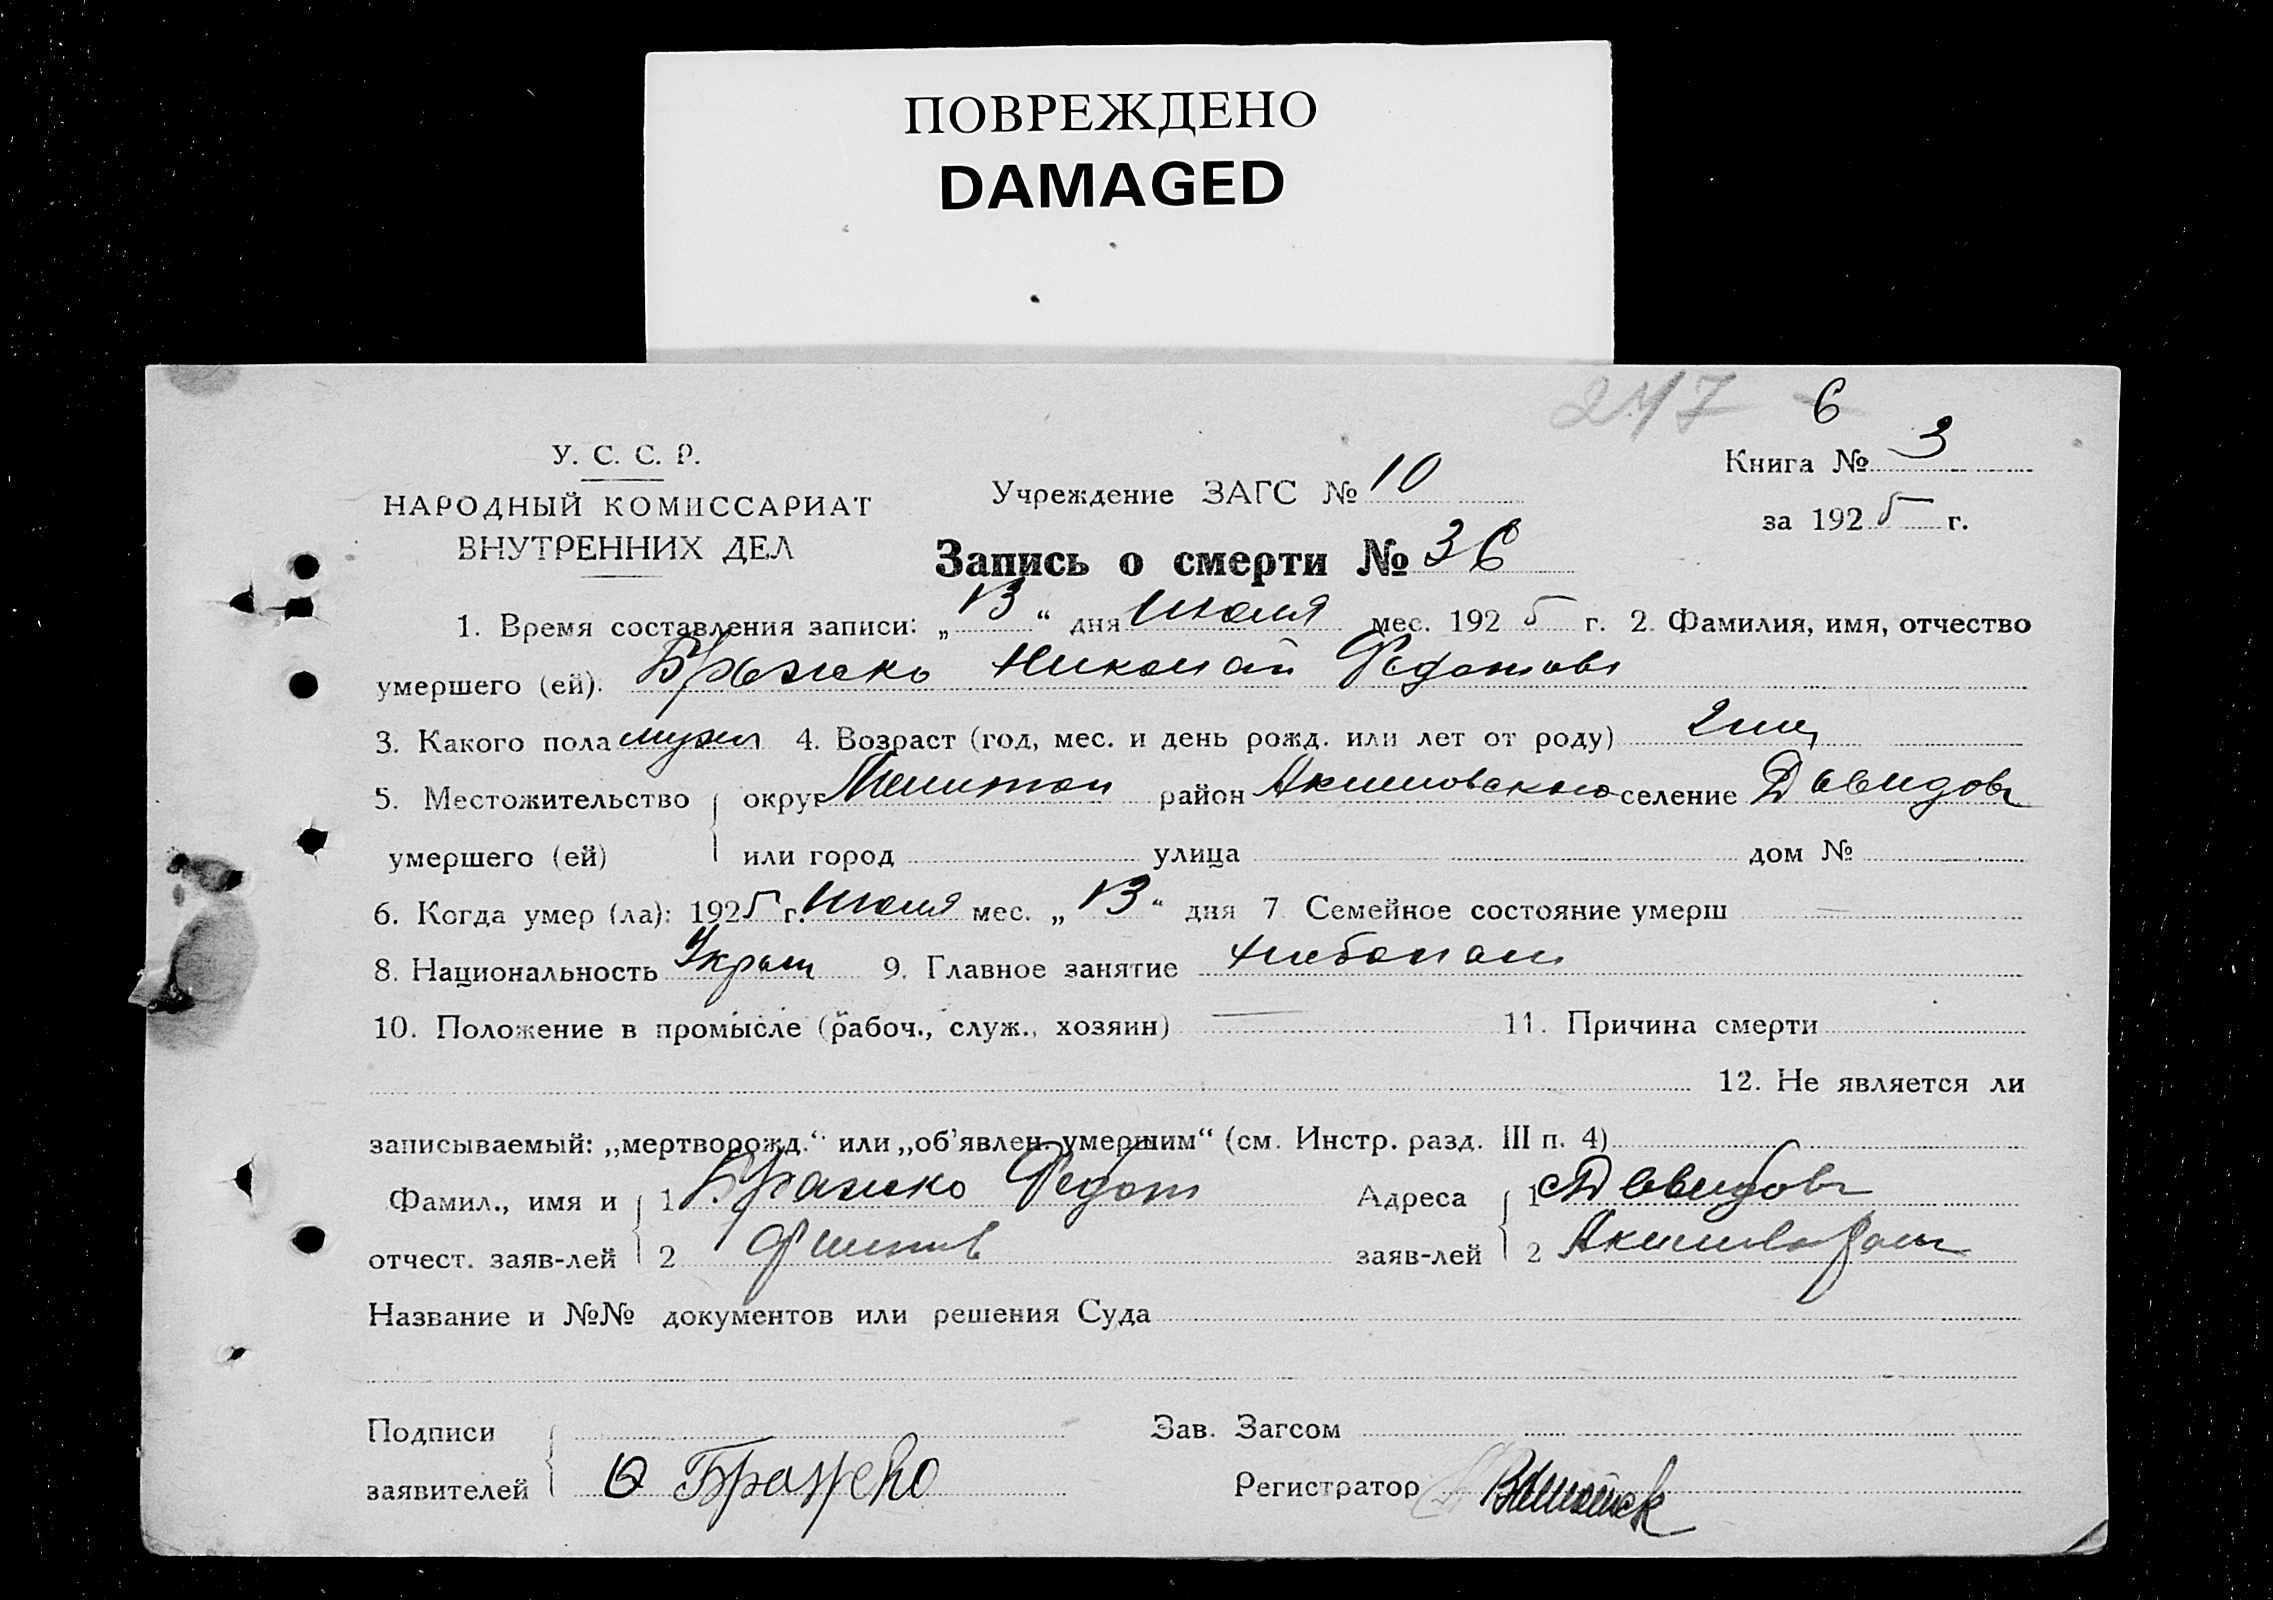 ПОВРЕЖДЕНО
DAMAGED
247 6
У. С. С. Р.
НАРОДНЫЙ КОМИССАРИАТ
ВНУТРЕННИХ ДЕЛ
Учреждение ЗАГС № 10
Книга № 3
за 1925 г.
Запись о смерти № 36
1. Время составления записи: „13“ дня Июля мес. 1925 г. 2. Фамилия, имя, отчество
умершего (ей). Бражко Николай Федотов
3. Какого пола мужск 4. Возраст (год, мес. и день рожд. или лет от роду) 2 мц
5. Местожительство округ Мелитоп район Акимовского селение Давидовк
умершего (ей) или город улица дом №
6. Когда умер (ла): 1925 г. Июля мес. „13“ дня 7 Семейное состояние умерш —
8. Национальность Украин 9. Главное занятие хлебопаш
10. Положение в промысле (рабоч., служ., хозяин) — 11. Причина смерти
12. Не является ли
записываемый: „мертворожд.“ или „об'явлен. умершим“ (см. Инстр. разд. III п. 4)
Фамил., имя и 1 Бражко Федот Адреса 1 с Давидовк
отчест. заяв-лей 2 Филипов заяв-лей 2 Акимов
Название и №№ документов или решения Суда
Подписи Зав. Загсом
заявителей Бражко Регистратор